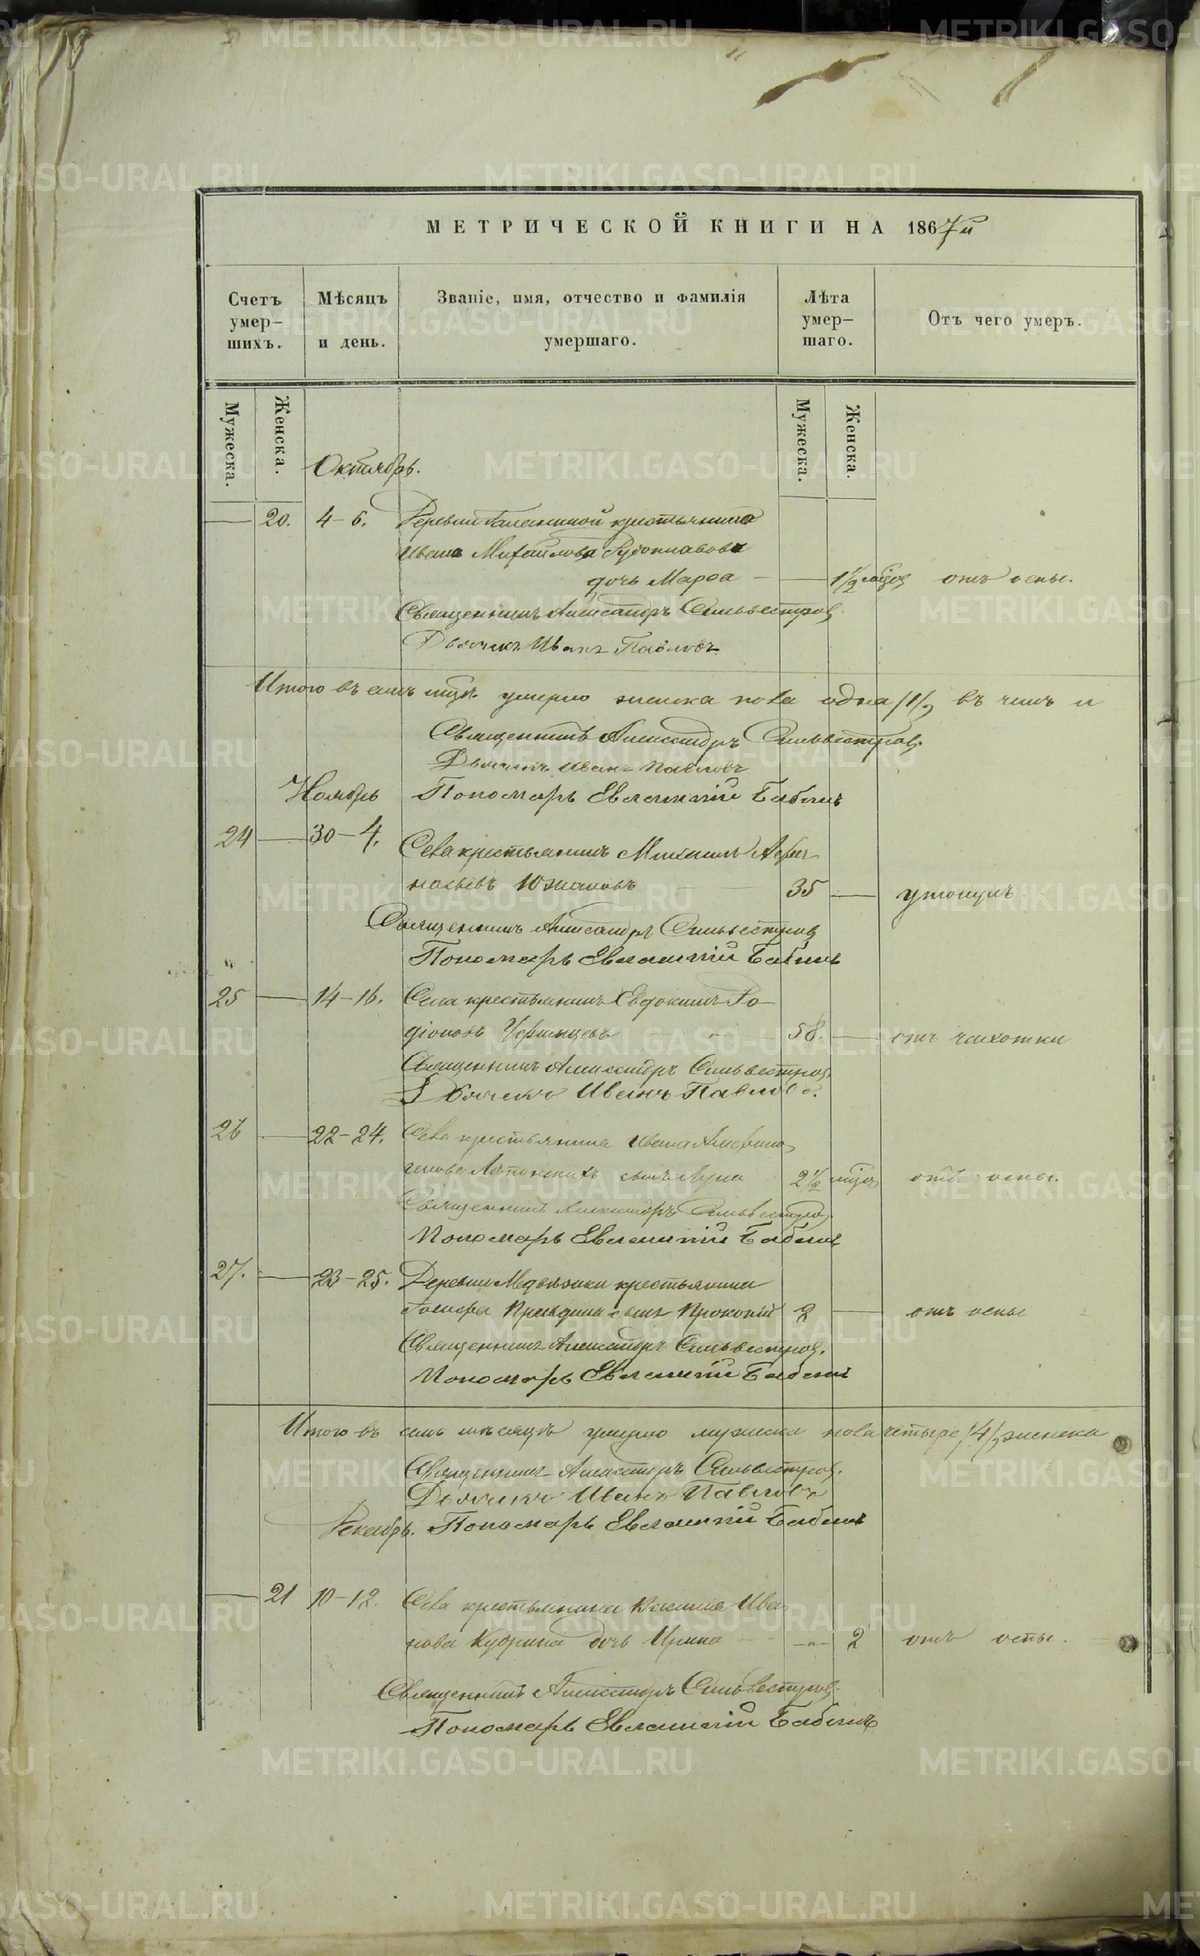 МЕТРИЧЕСКОЙ КНИГИ НА 1867й
Счетъ умер-шихъ.
Мѣсяцъ и день.
Званіе, имя, отчество и фамилія умершаго.
Лѣта умер-шаго.
Отъ чего умеръ.
Мужеска.
Женска.
Мужеска.
Женска.
Октябрь.
20. 4-6. Деревни крестьянина
Ивана Михайлова
дочь Марѳа 1½ отъ оспы.
Священникъ Александръ Сильвестровъ
Дьячекъ Иванъ Павловъ
Итого въ семъ умерло женска пола одна /1/
Священникъ Александръ Сильвестровъ.
Дьячекъ Иванъ Павловъ
Ноябрь Пономарь Евлампій Бабинъ
24 30-4. Села крестьянинъ Михаилъ Аѳа-
насьевъ Южаковъ 35 утонулъ.
Священникъ Александръ Сильвестровъ
Пономарь Евлампій Бабинъ
25 14-16. Села крестьянинъ Евдокимъ Ро-
діоновъ 58. отъ чахотки
Священникъ Александръ Сильвестровъ
Дьячекъ Иванъ Павловъ.
26 22-24. Села крестьянина Ивана
сынъ 2½ отъ оспы.
Священникъ Александръ Сильвестровъ
Пономарь Евлампій Бабинъ
27. 23-25. Деревни крестьянина
сынъ Прокопій 2 отъ оспы
Священникъ Александръ Сильвестровъ.
Пономарь Евлампій Бабинъ
Итого въ семъ мѣсяцѣ умерло мужеска пола четыре /4/ женска
Священникъ Александръ Сильвестровъ.
Дьячекъ Иванъ Павловъ
Декабрь. Пономарь Евлампій Бабинъ
21 10-12. Села крестьянина Василія Ива-
нова дочь Ирина 2 отъ оспы.
Священникъ Александръ Сильвестровъ.
Пономарь Евлампій Бабинъ
METRIKI.GASO-URAL.RU